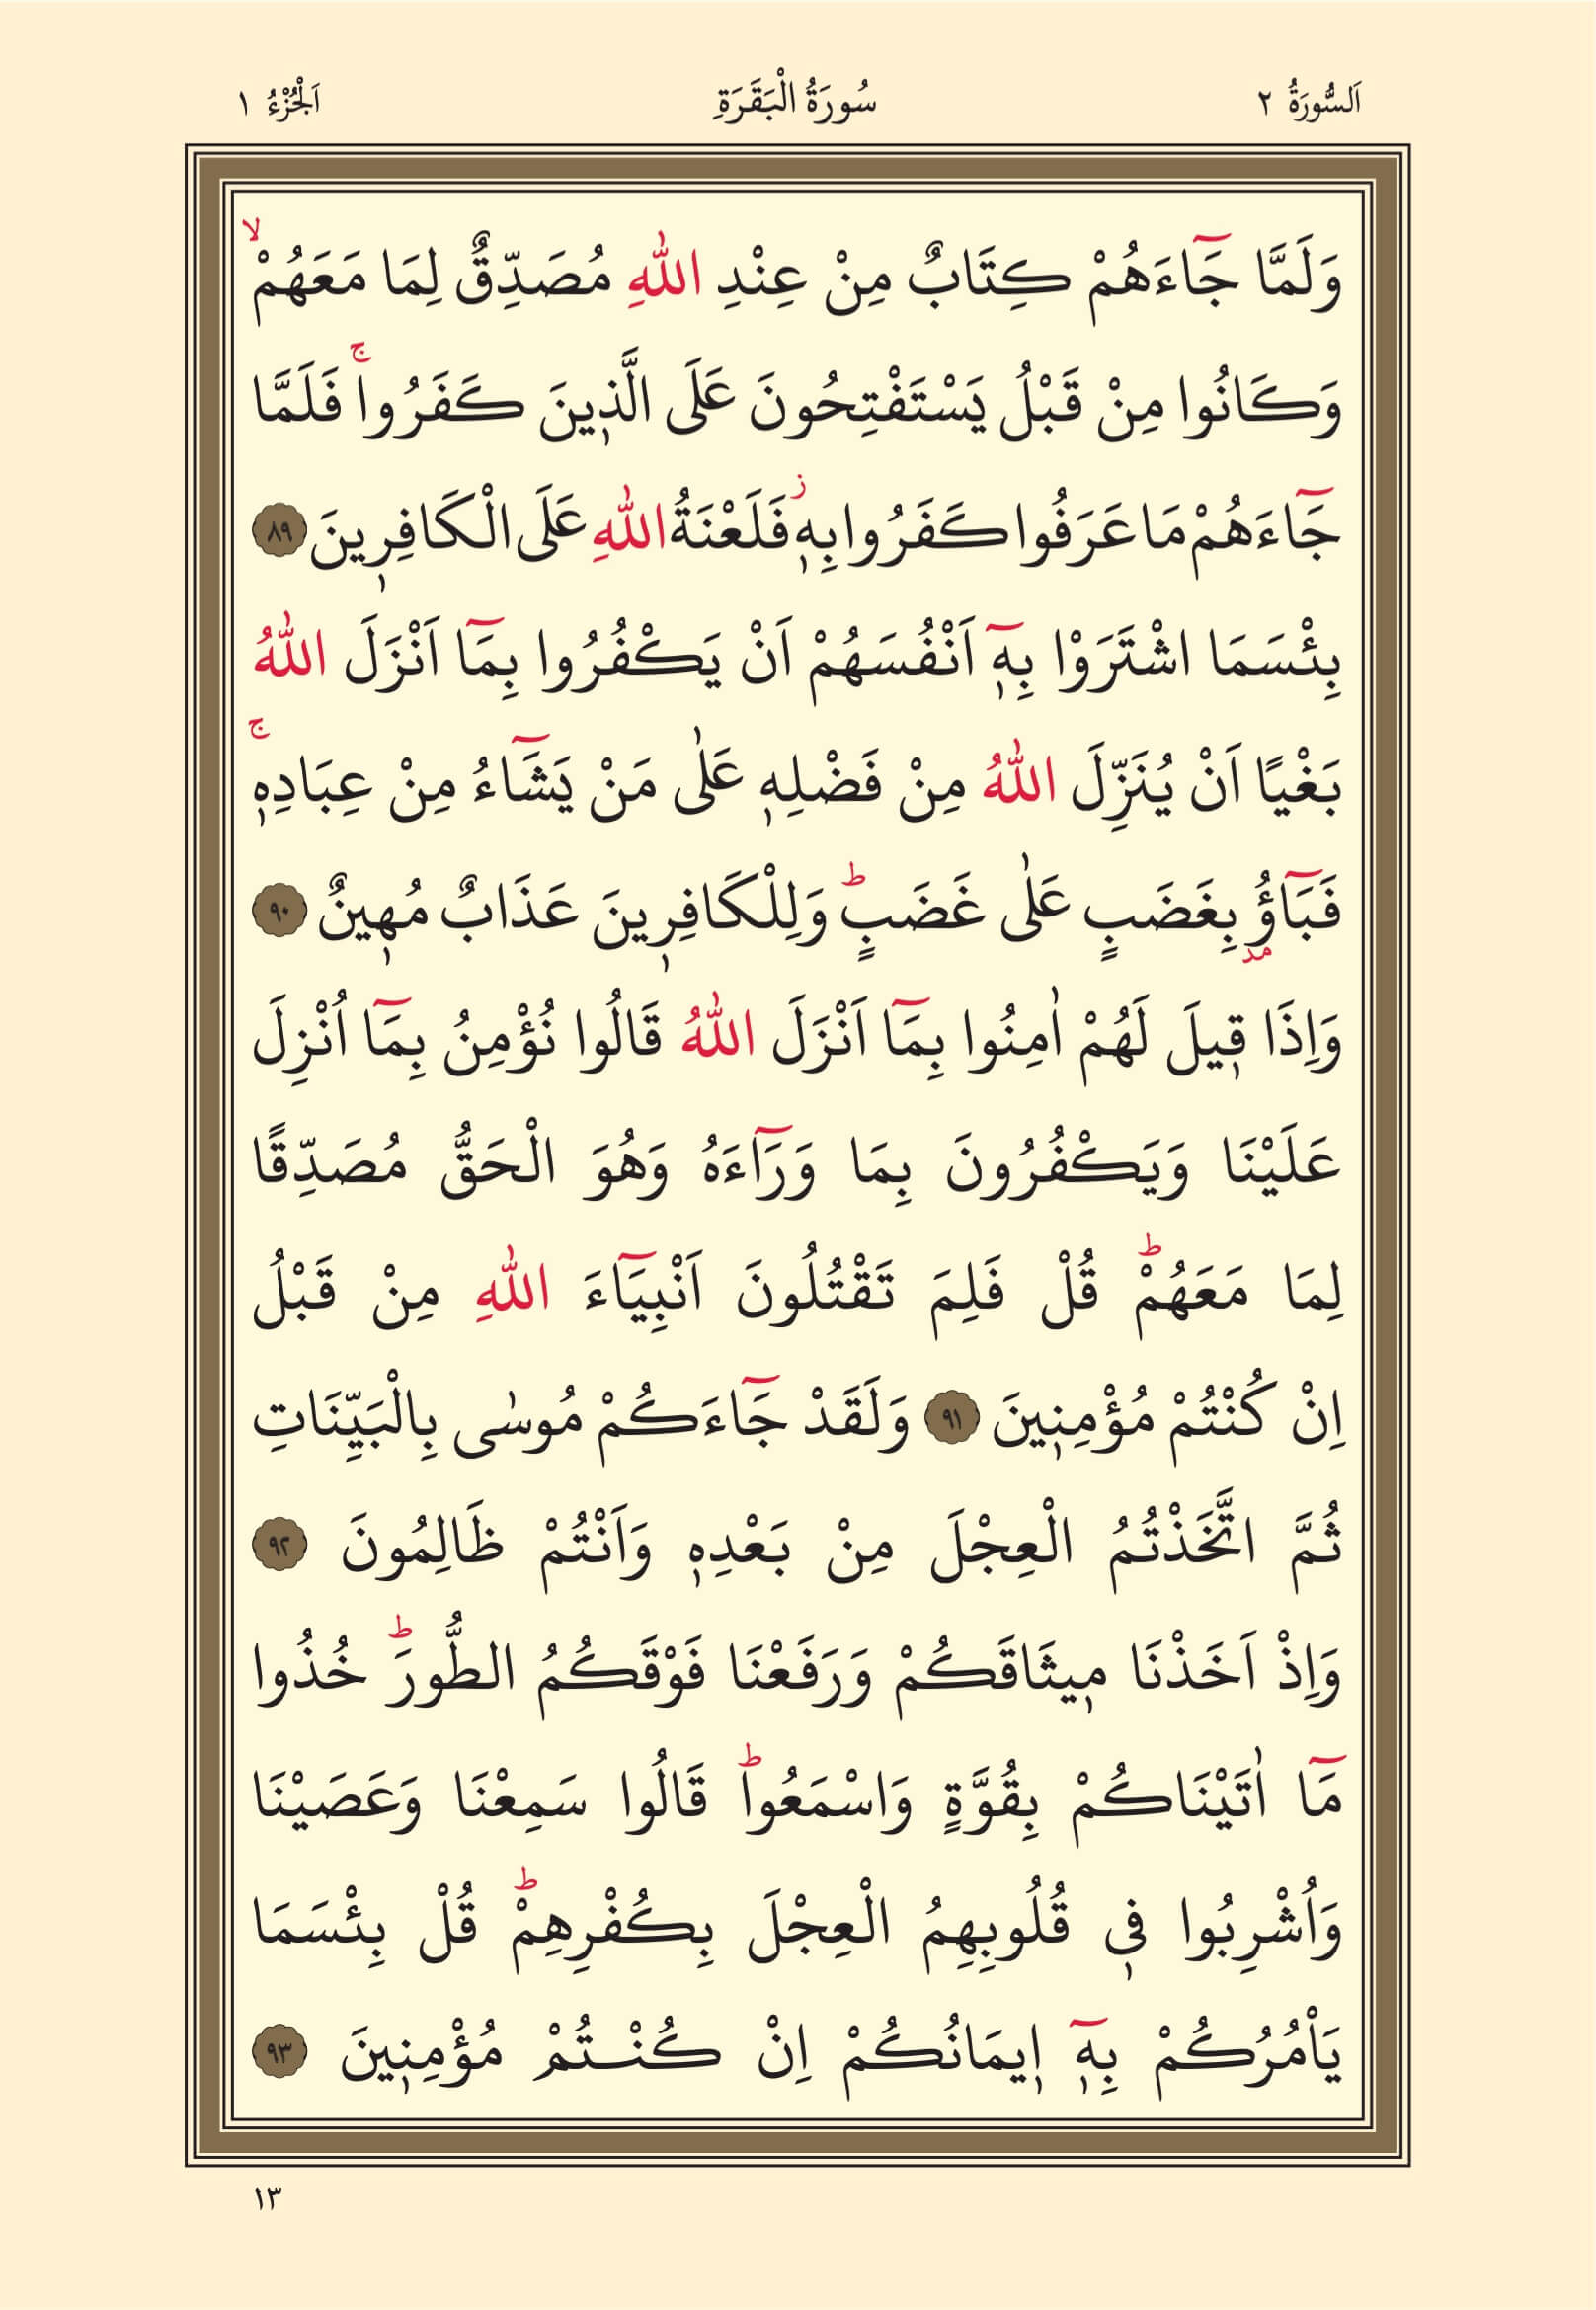 اَلسُّورَةُ ٢ سُورَةُ الْبَقَرَةِ اَلْجُزْءُ ١
وَلَمَّا جَٓاءَهُمْ كِتَابٌ مِنْ عِنْدِ اللّٰهِ مُصَدِّقٌ لِمَا مَعَهُمْۙ
وَكَانُوا مِنْ قَبْلُ يَسْتَفْتِحُونَ عَلَى الَّذ۪ينَ كَفَرُواۚ فَلَمَّا
جَٓاءَهُمْ مَا عَرَفُوا كَفَرُوا بِه۪ۘ فَلَعْنَةُ اللّٰهِ عَلَى الْكَافِر۪ينَ ٨٩
بِئْسَمَا اشْتَرَوْا بِه۪ٓ اَنْفُسَهُمْ اَنْ يَكْفُرُوا بِمَٓا اَنْزَلَ اللّٰهُ
بَغْيًا اَنْ يُنَزِّلَ اللّٰهُ مِنْ فَضْلِه۪ عَلٰى مَنْ يَشَٓاءُ مِنْ عِبَادِه۪ۚ
فَبَٓاؤُ۫ بِغَضَبٍ عَلٰى غَضَبٍۜ وَلِلْكَافِر۪ينَ عَذَابٌ مُه۪ينٌ ٩٠
وَاِذَا ق۪يلَ لَهُمْ اٰمِنُوا بِمَٓا اَنْزَلَ اللّٰهُ قَالُوا نُؤْمِنُ بِمَٓا اُنْزِلَ
عَلَيْنَا وَيَكْفُرُونَ بِمَا وَرَٓاءَهُ وَهُوَ الْحَقُّ مُصَدِّقًا
لِمَا مَعَهُمْۜ قُلْ فَلِمَ تَقْتُلُونَ اَنْبِيَٓاءَ اللّٰهِ مِنْ قَبْلُ
اِنْ كُنْتُمْ مُؤْمِن۪ينَ ٩١ وَلَقَدْ جَٓاءَكُمْ مُوسٰى بِالْبَيِّنَاتِ
ثُمَّ اتَّخَذْتُمُ الْعِجْلَ مِنْ بَعْدِه۪ وَاَنْتُمْ ظَالِمُونَ ٩٢
وَاِذْ اَخَذْنَا م۪يثَاقَكُمْ وَرَفَعْنَا فَوْقَكُمُ الطُّورَۜ خُذُوا
مَٓا اٰتَيْنَاكُمْ بِقُوَّةٍ وَاسْمَعُواۜ قَالُوا سَمِعْنَا وَعَصَيْنَا
وَاُشْرِبُوا ف۪ي قُلُوبِهِمُ الْعِجْلَ بِكُفْرِهِمْۜ قُلْ بِئْسَمَا
يَأْمُرُكُمْ بِه۪ٓ ا۪يمَانُكُمْ اِنْ كُنْتُمْ مُؤْمِن۪ينَ ٩٣
١٣